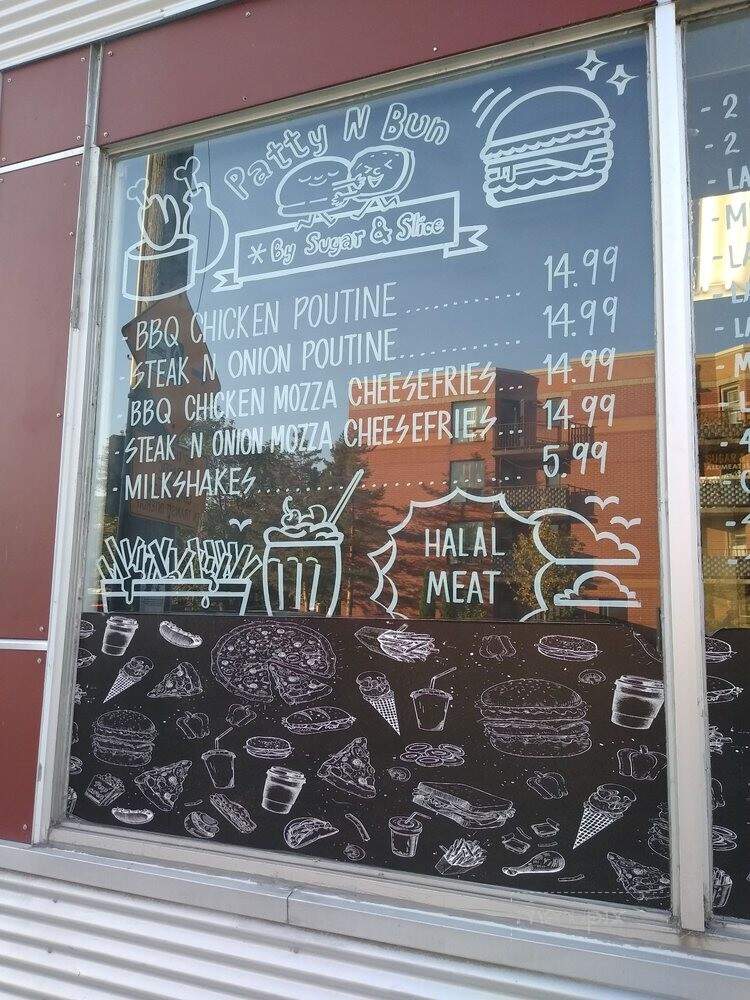 Patty N Bun
*By Sugar & Slice
- BBQ CHICKEN POUTINE .............. 14.99
- STEAK N ONION POUTINE.............. 14.99
- BBQ CHICKEN MOZZA CHEESEFRIES... 14.99
- STEAK N ONION MOZZA CHEESEFRIES... 14.99
- MILKSHAKES......................... 5.99
HALAL
MEAT
- 2
- 2
- LA
- M
- LA
- LA
- LA
- M